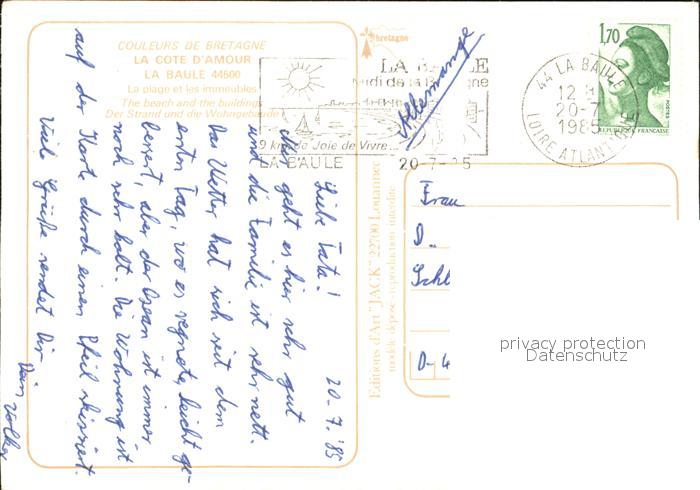 COULEURS DE BRETAGNE
LA COTE D'AMOUR
LA BAULE 44500
La plage et les immeubles
The beach and the buildings
Der Strand und die Wohngebäude
bretagne
LA BAULE
Midi de la Bretagne
9 km de Joie de Vivre...
LA BAULE 20-7-85
Allemagne
1,70
REPUBLIQUE FRANÇAISE
POSTES
44 LA BAULE
12 H
20-7
1985
LOIRE ATLANTIQUE
20.7.'85
Liebe Tata!
Mir geht es hier sehr gut
und die Familie ist sehr nett.
Das Wetter hat sich seit dem
ersten Tag, wo es regnete, leicht ge-
bessert, aber der Ozean ist immer
noch sehr kalt. Die Wohnung ist
auf der Karte durch einen Pfeil skizziert.
Viele Grüße sendet Dir
Dein Volker
Editions d'Art "JACK" 22700 Louannec
modèle déposé - reproduction interdite
Frau
D
Schl
D-4
privacy protection
Datenschutz